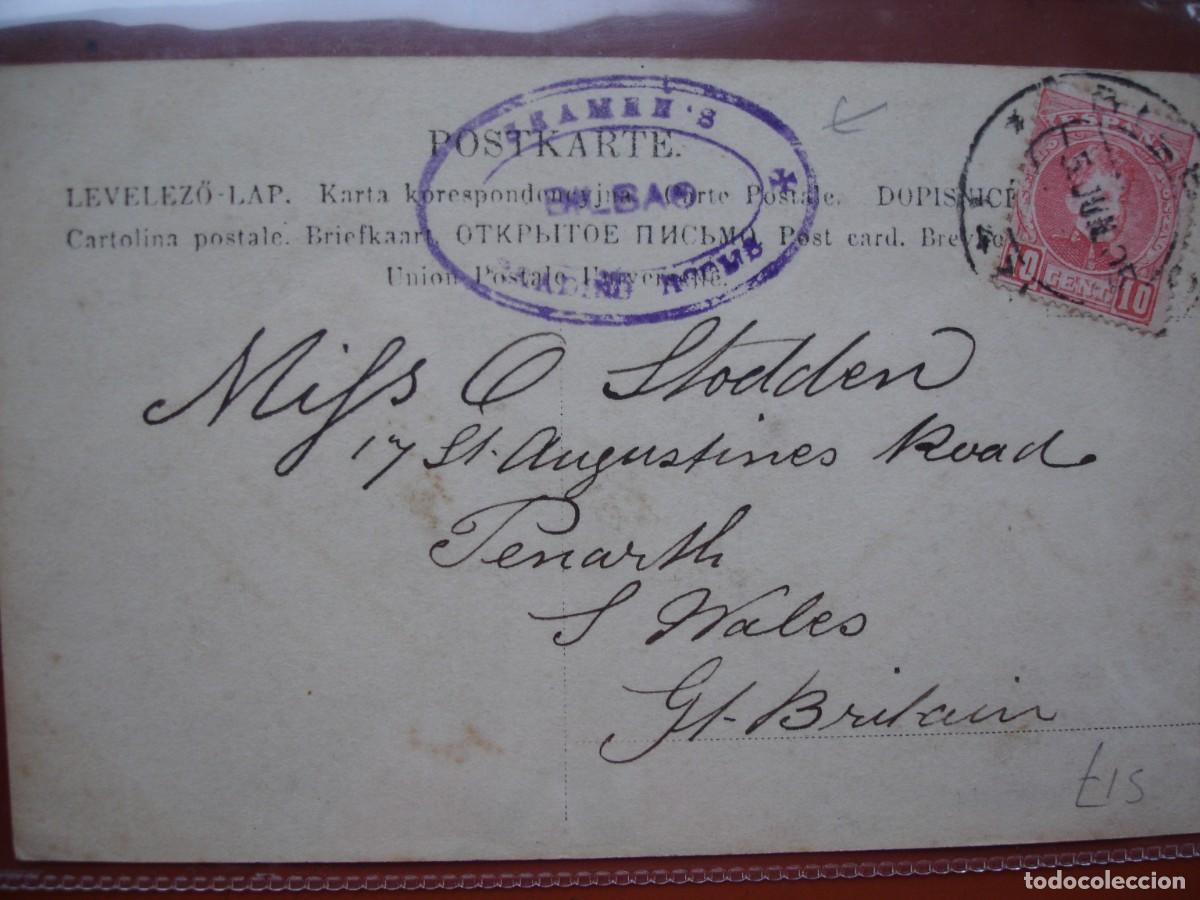 SEAMEN'S
BILBAO
READING ROOMS
POSTKARTE.
LEVELEZŐ-LAP. Karta korespondencyjna. Carte Postale. DOPISNICE
Cartolina postale. Briefkaart. ОТКРЫТОЕ ПИСЬМО. Post card.
Union Postale Universelle.
ESPAÑA
10 CENT. 10
JUN
Miss O Stodden
17 St. Augustines Road
Penarth
S Wales
Gt. Britain
£15
todocoleccion